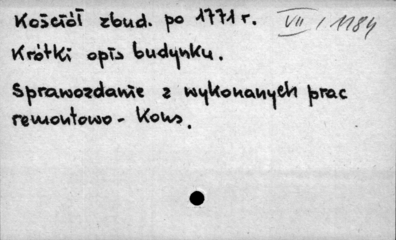 Kościół zbud. po 1771 r. VII / 1184
Krótki opis budynku.
Sprawozdanie z wykonanych prac
remontowo - kons.